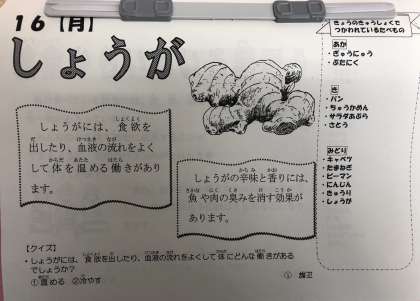 16【月】
しょうが
しょうがには、食欲を
出したり、血液の流れをよく
して体を温める働きがあり
ます。
しょうがの辛味と香りには、
魚や肉の臭みを消す効果が
あります。
きょうのきゅうしょくで
つかわれているたべもの
あか
・ぎゅうにゅう
・ぶたにく
き
・パン
・ちゅうかめん
・サラダあぶら
・さとう
みどり
・キャベツ
・たまねぎ
・ピーマン
・にんじん
・きゅうり
・しょうが
【クイズ】
・しょうがには、食欲を出したり、血液の流れをよくして体にどんな働きがある
でしょうか？
①温める ②冷やす
①